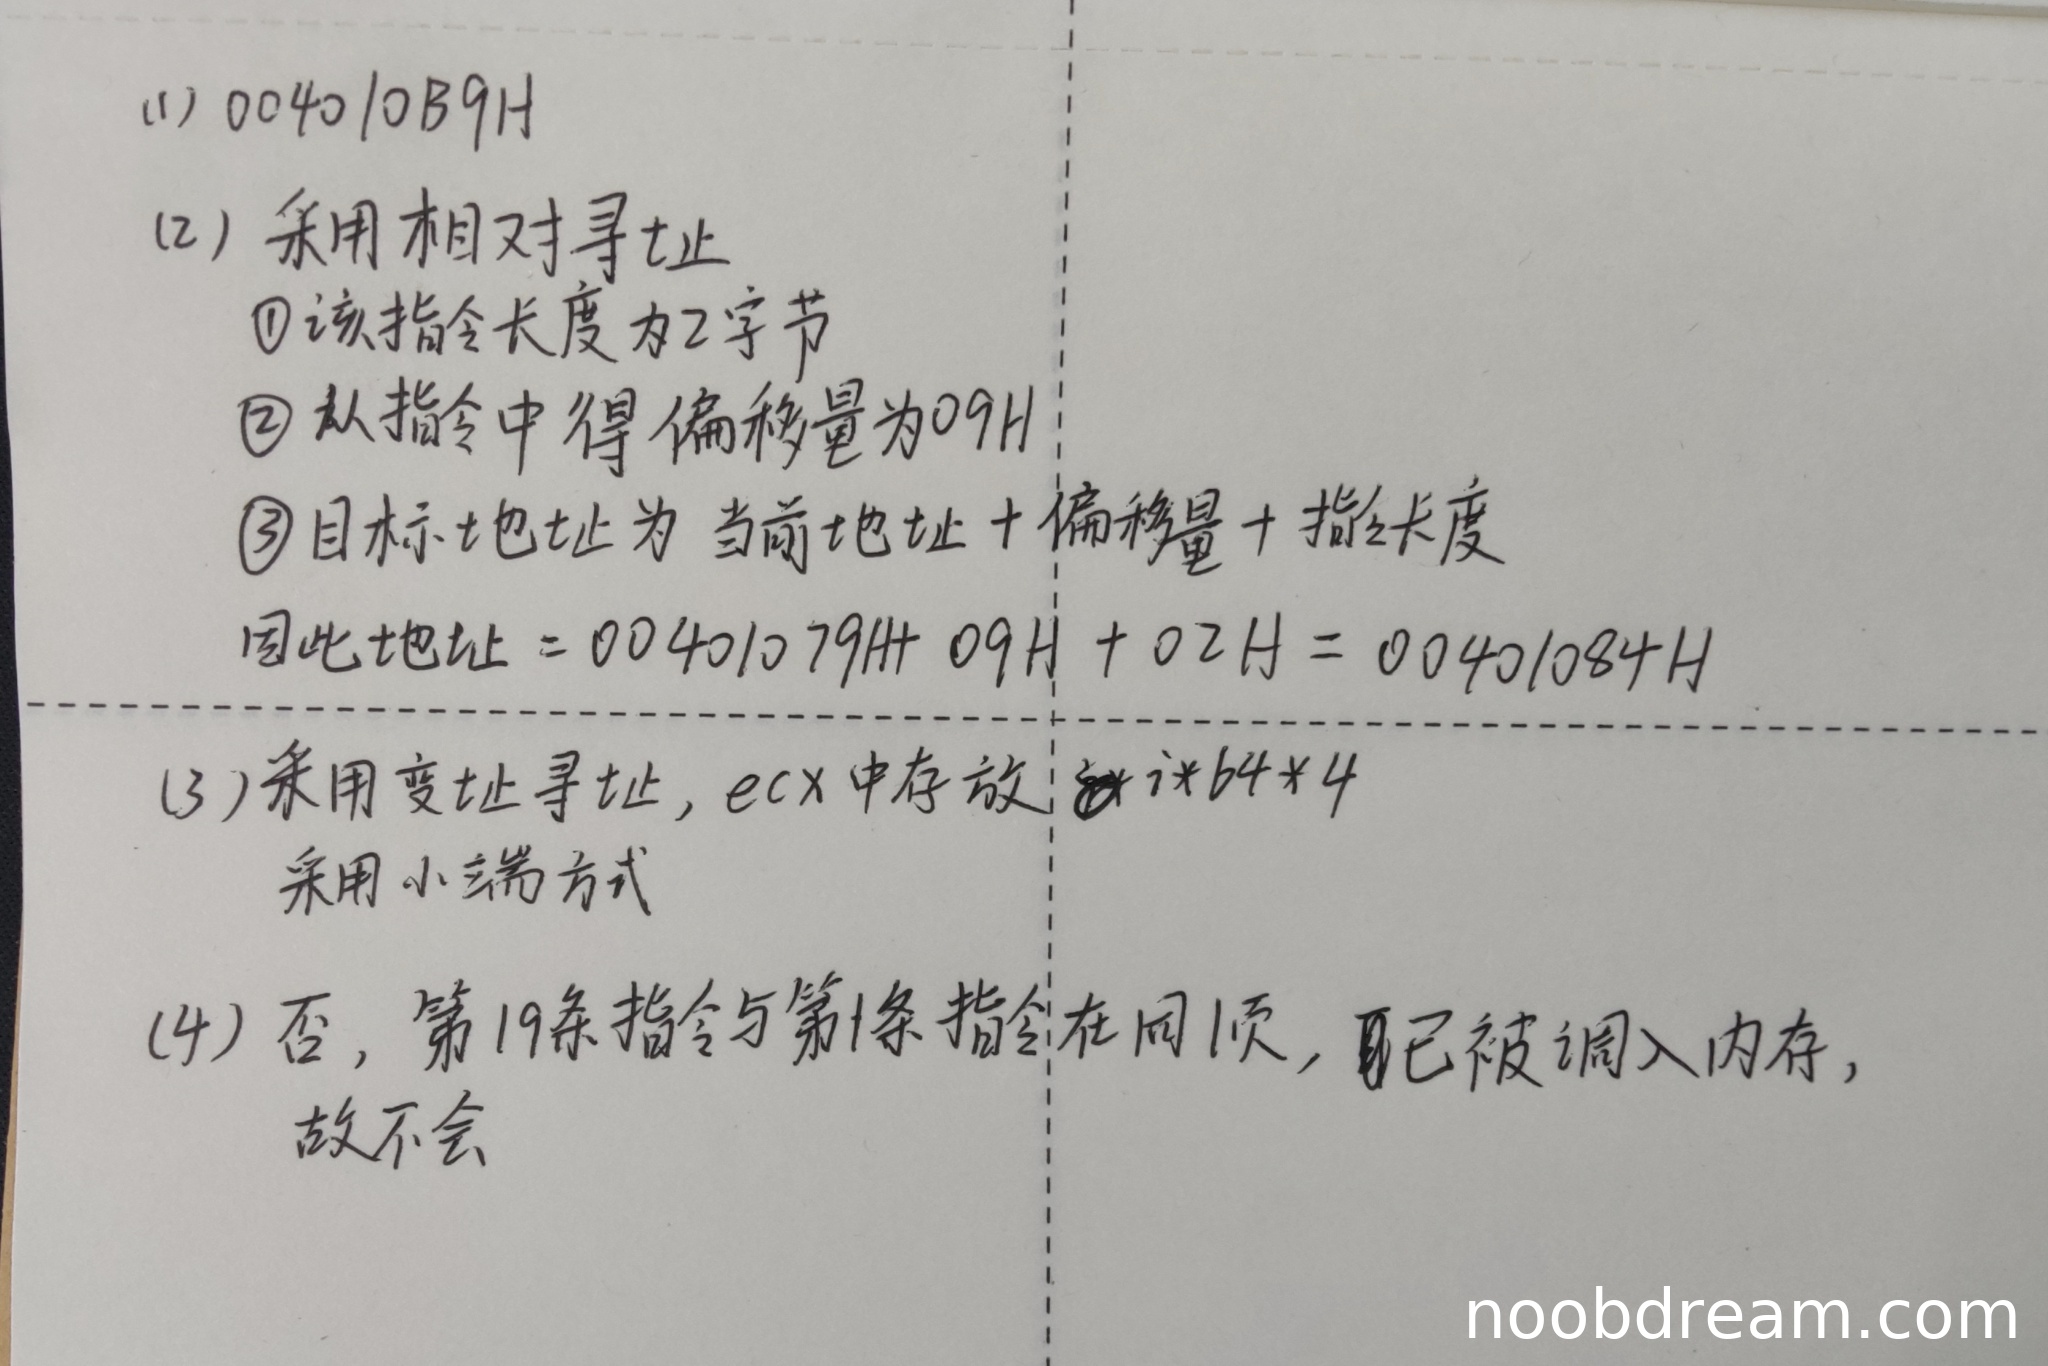 (1) 004010B9H
(2) 采用相对寻址
①该指令长度为2字节
②从指令中得偏移量为09H
③目标地址为 当前地址+偏移量+指令长度
因此地址=00401079H+09H+02H=00401084H
(3)采用变址寻址,ecx中存放 i*64*4
采用小端方式
(4) 否,第19条指令与第1条指令在同1页,已被调入内存,
故不会
noobdream.com